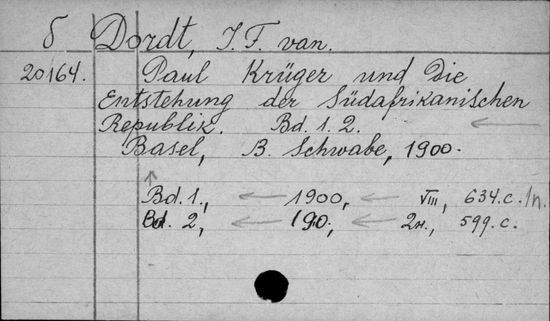 δ Dordt, J. F. van.
20164. Paul Krüger und die
Entstehung der Südafrikanischen
Republik. Bd. 1. 2.
Basel, B. Schwabe, 1900.
Bd. 1., 1900, VIII, 634. c. /n.
Bd. 2, 190, 2н., 599. c.